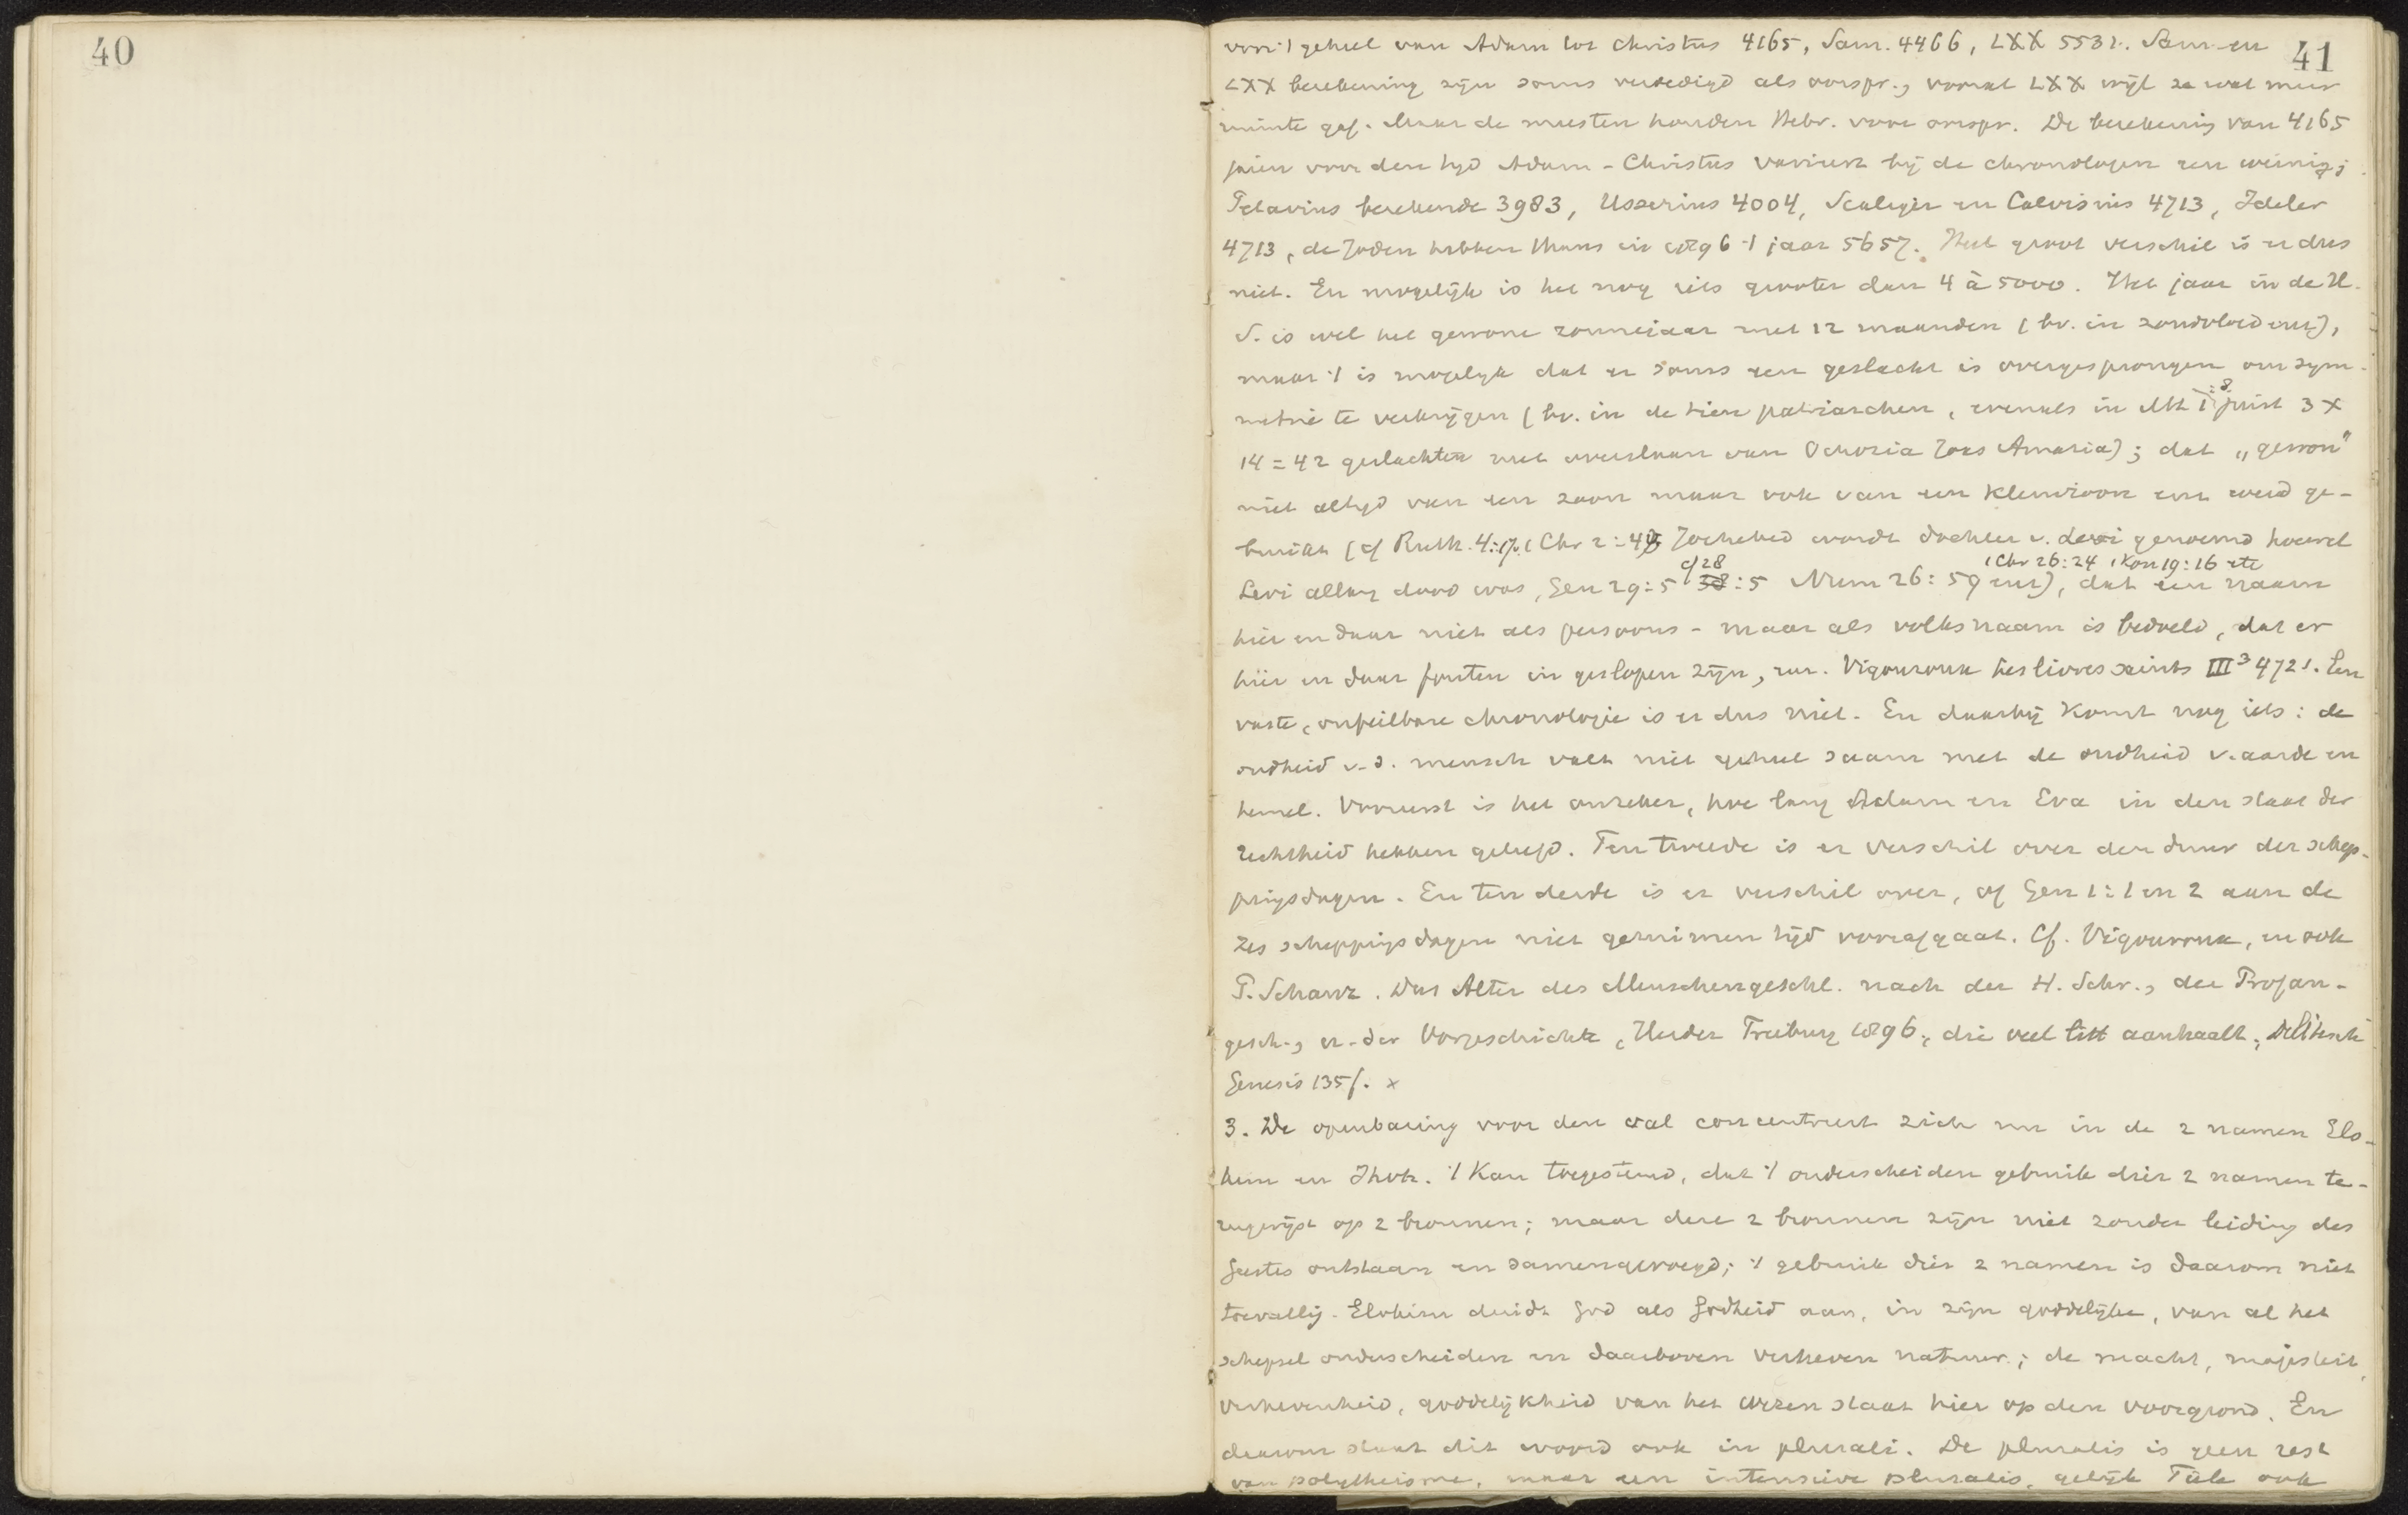 40
41
voor 't geheel van Adam tot Christus 4165, Sam. 4466, LXX 5532. Sam. en
LXX berekening zijn soms verdedigd als oorspr., vooral LXX wijl ze wat meer
ruimte gaf. Maar de meesten houden Hebr. voor oorspr. De berekening van 4165
jaren voor den tyd Adam - Christus varieert bij de chronologen een weinig;
Petavius berekende 3983, Usserius 4004, Scaliger en Calvisius 4713, Ideler
4713, de Joden hebben thans in 1896 't jaar 5657. Heel groot verschil is er dus
niet. En mogelijk is het nog iets grooter dan 4 à 5000. Het jaar in de H.
S. is wel het gewone zonnejaar met 12 maanden (bv. in zondvloed enz),
maar 't is mogelyk dat er soms een geslacht is overgesprongen om sym-
metrie te verkrijgen (bv. in de tien patriarchen, evenals in Mt 1:8 juist 3 x
14 = 42 geslachten met overslaan van Ochozia Joas Amazia); dat „gewon"
niet altyd van een zoon maar ook van een kleinzoon enz werd ge-
bruikt (cf Ruth. 4:17. 1 Chr 2:4 Jochebed wordt dochter v. Levi genoemd hoewel
Levi allang dood was, Gen 29:5 cf 28:5 Num 26:59 enz), 1 Chr 26:24 1 Kon 19:16 etc dat een naam
hier en daar niet als persoons- maar als volksnaam is bedoeld, dat er
hier en daar fouten in geslopen zijn, enz. Vigouroux les livres saints III³ 472 s. Een
vaste, onfeilbare chronologie is er dus niet. En daarbij komt nog iets: de
oudheid v. d. mensch valt niet geheel saam met de oudheid v. aarde en
hemel. Vooreerst is het onzeker, hoe lang Adam en Eva in den staat der
rechtheid hebben geleefd. Ten tweede is er verschil over den duur der schep-
pingsdagen. En ten derde is er verschil over, of Gen 1:1 en 2 aan de
zes scheppingsdagen niet geruimen tijd voorafgaat. Cf. Vigouroux, en ook
P. Schanz. Das Alter des Menschengeschl. nach der H. Schr., der Profan-
gesch., u. der Vorgeschichte, Herder Freiburg 1896, die veel litt aanhaalt, Delitzsch
Genesis 135f. x
3. De openbaring voor den val concentreert zich nu in de 2 namen Elo-
him en Jhvh. 't Kan toegestemd, dat 't onderscheiden gebruik dier 2 namen te-
rugwijst op 2 bronnen; maar deze 2 bronnen zijn niet zonder leiding des
Geestes ontstaan en samengevoegd; 't gebruik dier 2 namen is daarom niet
toevallig. Elohim duidt God als Godheid aan, in zijn goddelijke, van al het
schepsel onderscheiden en daarboven verheven natuur; de macht, majesteit,
verhevenheid, goddelijkheid van het wezen staat hier op den voorgrond. En
daarom staat dit woord ook in plurali. De pluralis is geen rest
van polytheisme, maar een intensieve pluralis, gelijk Tiele ook